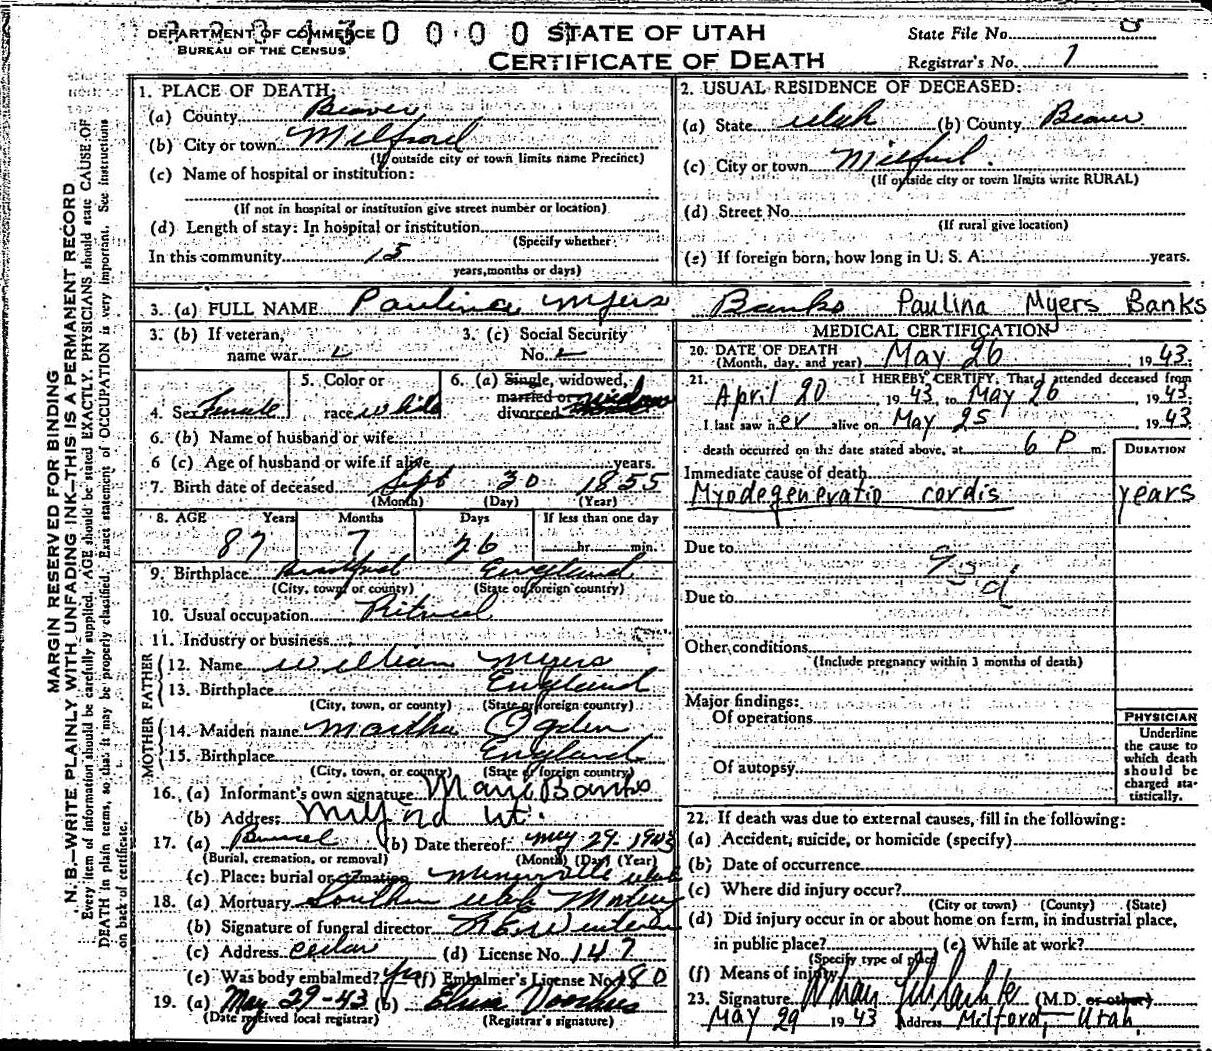 DEPARTMENT OF COMMERCE
BUREAU OF THE CENSUS
STATE OF UTAH
CERTIFICATE OF DEATH
State File No. 8
Registrar's No. 1
MARGIN RESERVED FOR BINDING
N. B.—WRITE PLAINLY WITH UNFADING INK—THIS IS A PERMANENT RECORD
Every item of information should be carefully supplied. AGE should be stated EXACTLY. PHYSICIANS should state CAUSE OF
DEATH in plain terms, so that it may be properly classified. Exact statement of OCCUPATION is very important. See instructions
on back of certificate.
1. PLACE OF DEATH:
(a) County Beaver
(b) City or town Milford
(If outside city or town limits name Precinct)
(c) Name of hospital or institution:
(If not in hospital or institution give street number or location)
(d) Length of stay: In hospital or institution
(Specify whether
In this community 15
years, months or days)
2. USUAL RESIDENCE OF DECEASED:
(a) State Utah (b) County Beaver
(c) City or town Milford
(If outside city or town limits write RURAL)
(d) Street No.
(If rural give location)
(e) If foreign born, how long in U. S. A. years.
3. (a) FULL NAME Paulina Myers Banks Paulina Myers Banks
3. (b) If veteran,
name war
3. (c) Social Security
No.
4. Sex Female
5. Color or
race white
6. (a) Single, widowed,
married or
divorced widow
6. (b) Name of husband or wife
6 (c) Age of husband or wife if alive years.
7. Birth date of deceased Sept 30 1855
(Month) (Day) (Year)
8. AGE Years Months Days If less than one day
87 7 26 hr. min.
9. Birthplace Bradford England
(City, town, or county) (State or foreign country)
10. Usual occupation Retired
11. Industry or business
FATHER
12. Name William Myers
13. Birthplace England
(City, town, or county) (State or foreign country)
MOTHER
14. Maiden name Martha Ogden
15. Birthplace England
(City, town, or county) (State or foreign country)
16. (a) Informant's own signature Marie Banks
(b) Address: Milford Ut.
17. (a) Burial (b) Date thereof May 29. 1943
(Burial, cremation, or removal) (Month) (Day) (Year)
(c) Place: burial or cremation Minersville Utah
18. (a) Mortuary Southern Utah Mortuary
(b) Signature of funeral director
(c) Address Cedar (d) License No. 147
(e) Was body embalmed? Yes (f) Embalmer's License No. 180
19. (a) May 29-43 (b) Voorhees
(Date received local registrar) (Registrar's signature)
MEDICAL CERTIFICATION
20. DATE OF DEATH
(Month, day, and year) May 26, 1943
21. I HEREBY CERTIFY, That I attended deceased from
April 20, 1943, to May 26, 1943.
I last saw her alive on May 25, 1943
death occurred on the date stated above, at 6 P m.
DURATION
Immediate cause of death
Myodegeneratio cordis years
Due to 93d
Due to
Other conditions
(Include pregnancy within 3 months of death)
Major findings:
Of operations
Of autopsy
PHYSICIAN
Underline
the cause to
which death
should be
charged sta-
tistically.
22. If death was due to external causes, fill in the following:
(a) Accident, suicide, or homicide (specify)
(b) Date of occurrence
(c) Where did injury occur?
(City or town) (County) (State)
(d) Did injury occur in or about home on farm, in industrial place,
in public place? (e) While at work?
(Specify type of place)
(f) Means of injury
23. Signature (M.D. or other)
May 29 1943 Address Milford, Utah